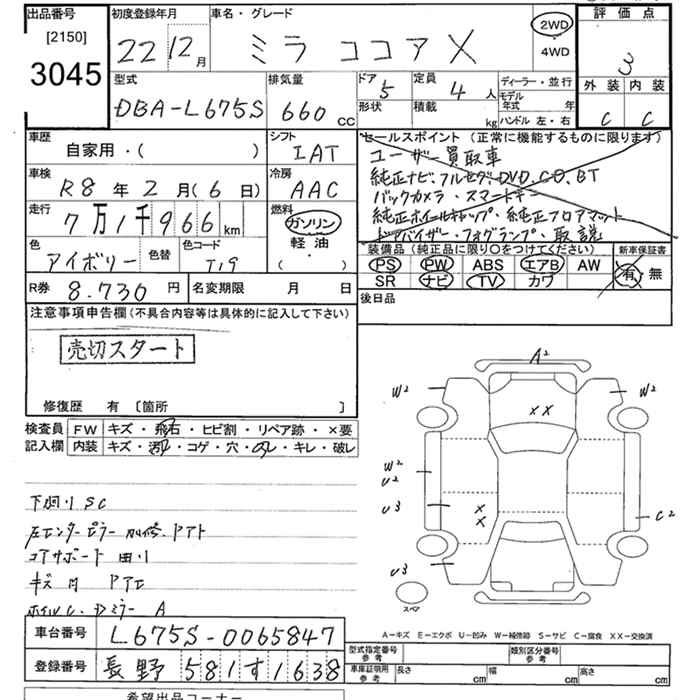 出品番号 初度登録年月 車名・グレード 2WD 4WD 評価点
[2150]
3045
22 12月 ミラ ココア X 3
型式 排気量 ドア 定員 ディーラー・並行 外装 内装
DBA-L675S 660cc 5 4人 モデル年式 年 C C
形状 積載 kg ハンドル 左・右
車歴 シフト セールスポイント(正常に機能するものに限ります)
自家用・( ) IAT ユーザー買取車
車検 冷房 純正ナビ,フルセグ,DVD,CD,BT
R8年2月(6日) AAC バックカメラ・スマートキー
走行 燃料 純正ホイールキャップ・純正フロアマット
7万1千966km ガソリン ドアバイザー・フォグランプ・取説
色 色替 色コード 軽油 装備品(純正品に限り○をつけてください) 新車保証書
アイボリー T19 ・( ) PS PW ABS エアB AW 有・無
R券 8.730円 名変期限 月 日 SR ナビ TV カワ
後日品
注意事項申告欄(不具合内容等は具体的に記入して下さい)
売切スタート
修復歴 有 〔箇所 〕
検査員 FW キズ・飛石・ヒビ割・リペア跡・×要
記入欄 内装 キズ・コゲ・穴・キレ・破レ
A2
W2 W2
XX
W2
U2
U3 X X C2
U3
スペア
下廻りSC
左センターピラー 加修.アト
コアサポート 曲り
キズ 凹 アトE
ホイルC.Dミラー A
A-キズ E-エクボ U-凹み W-補修跡 S-サビ C-腐食 XX-交換済
車台番号 L675S-0065847
型式指定番号 参考 類別区分番号 参考
登録番号 長野 581す1638
車庫証明用 参考 長さ cm 幅 cm 高さ cm
希望出品コーナー